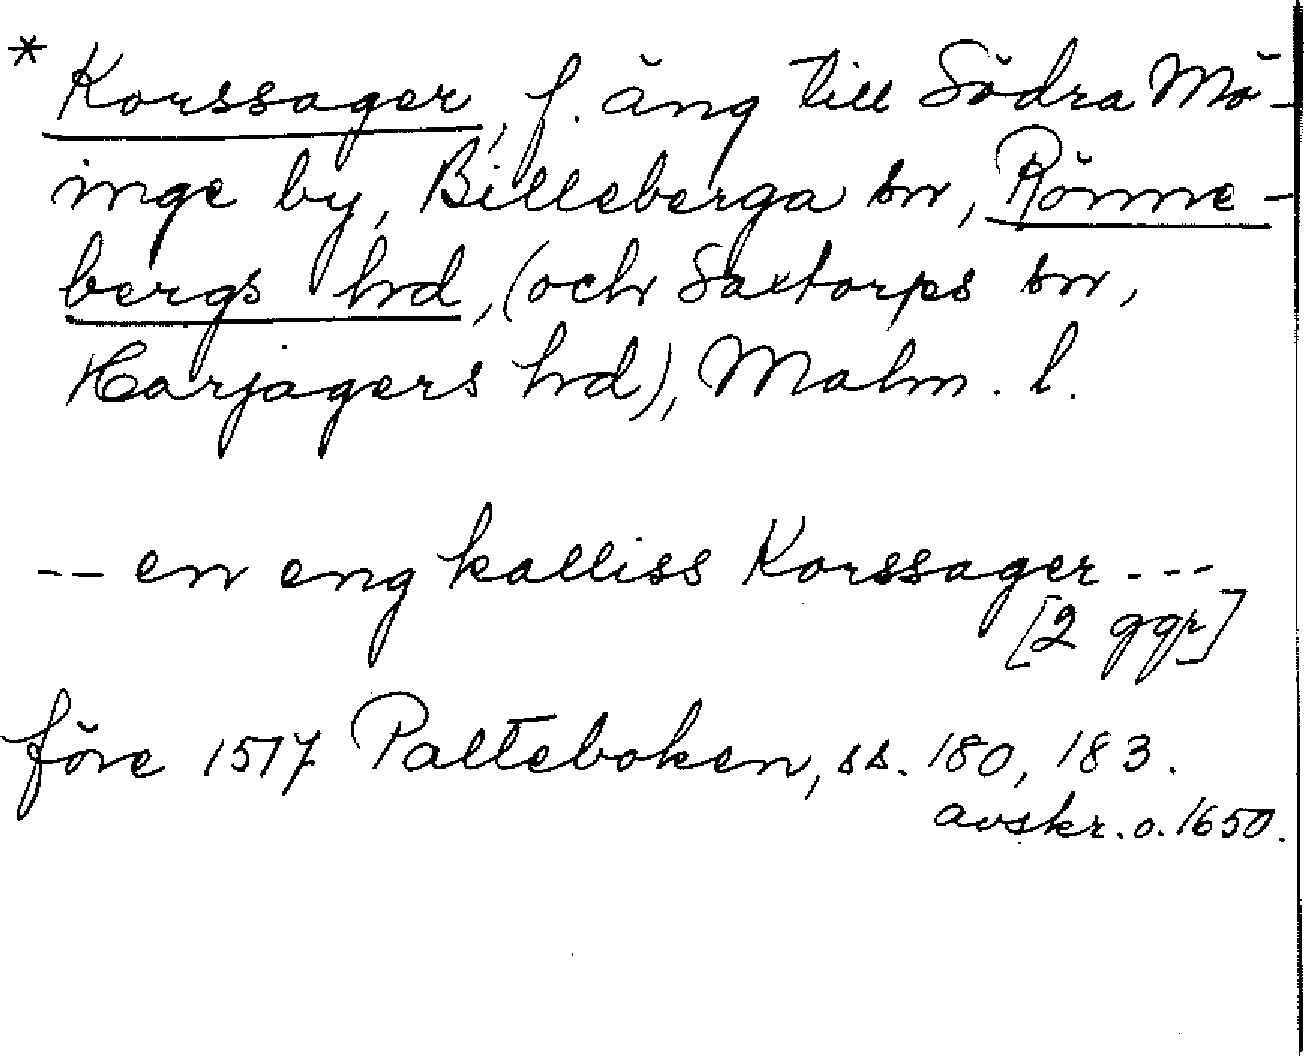 * Korssager, f. äng till Södra Mö-
inge by, Billeberga sn, Rönne-
bergs hrd, (och Saxtorps sn,
Harjagers hrd), Malm. l.
-- en eng kalliss Korssager ---
[2 ggr]
före 1517 Palteboken, ss. 180, 183.
avskr. o. 1650.